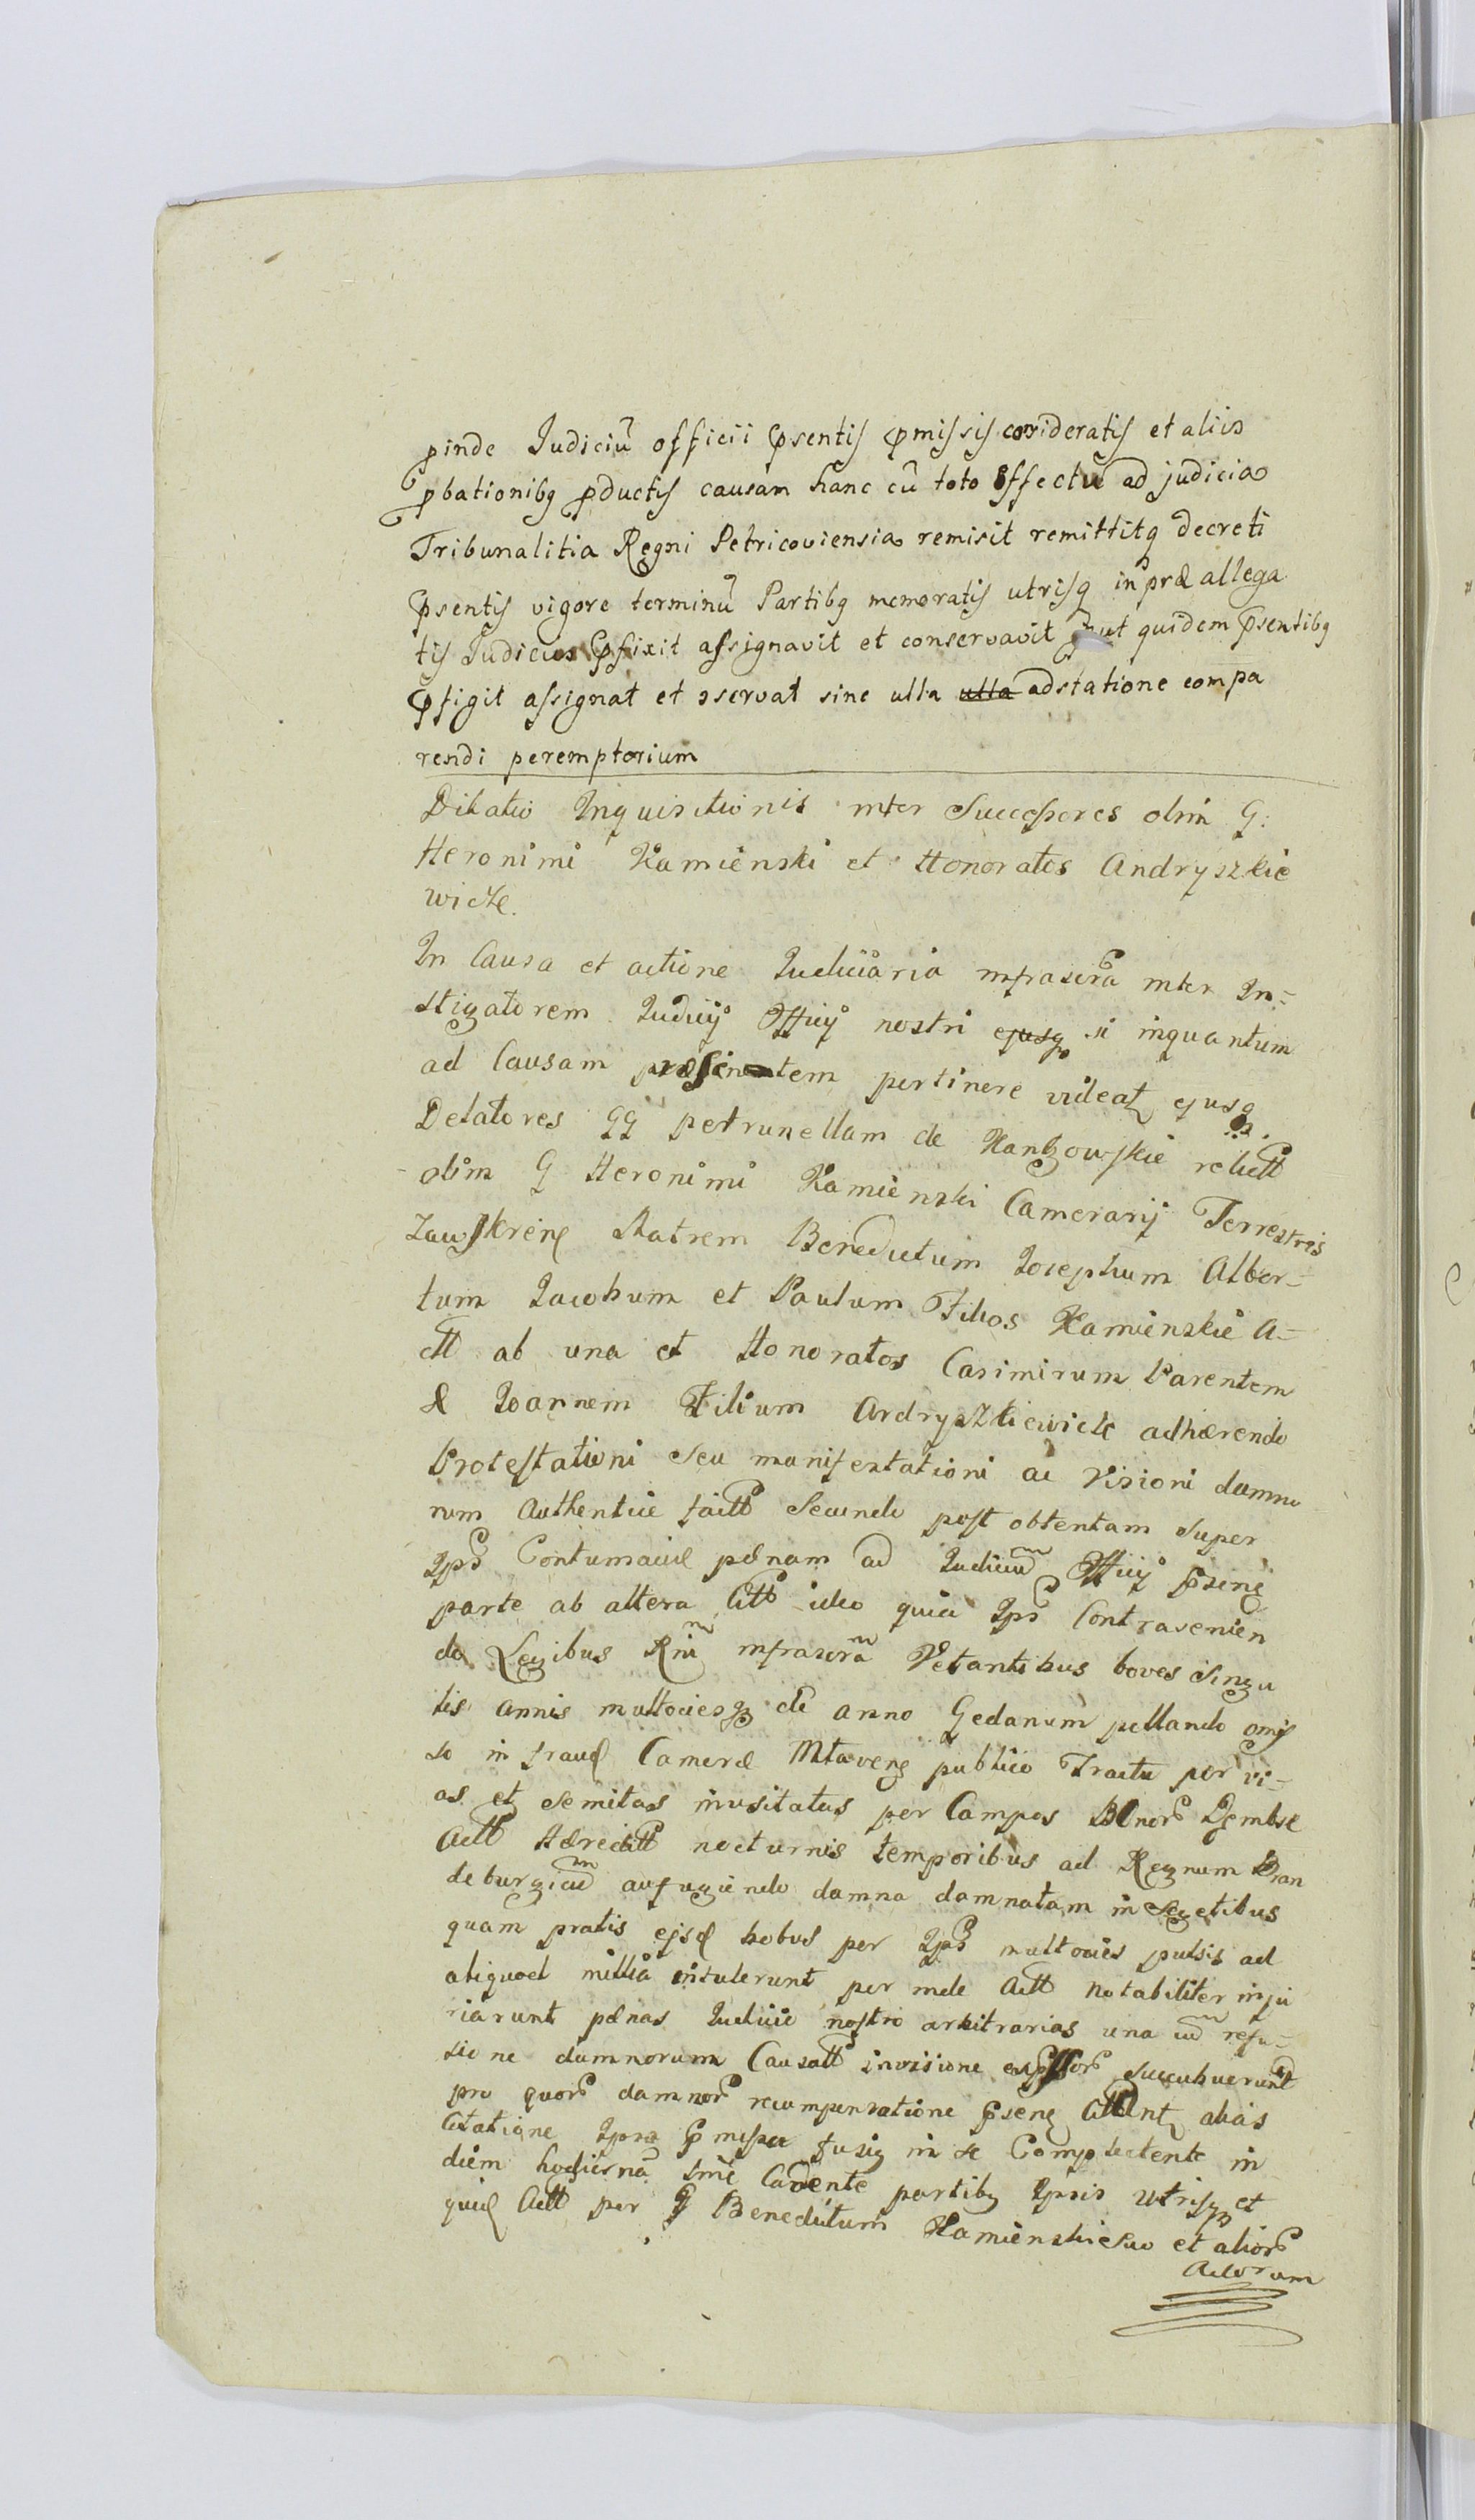 pinde Judiciū officii Psentis Pmissis consideratis et aliis
pbationibq pductis causam hanc cū toto Effectu ad judicia
Tribunalitia Regni Petricoviensia remisit remittitq decreti
Psentis vigore terminū Partibq memoratis utrisq in præallega
tis Judiciis Pfixit assignavit et conservavit put quidem Psentibq
Pfigit assignat et ɔservat sine ulla ulla adstatione compa
rendi peremptorium
Dilatio Inquisitionis inter Successores olim G:
Heronimi Kamienski et Honoratos Andryszkie
wicze.
In Causa et actione Judiciaria infrascra inter In=
stigatorem Judicij Officij nostri ejusq si inquantum
ad Causam præsentem pertinere videat ejusq
Delatores GG petrunellam de relictt
olim G Heronimi Kamienski Camerarij Terrestris
Zawskren Matrem Benedictum Josephum Alber=
tum Jacobum et Paulum Filios Kamienskie A=
ctt ab una et Honoratos Casimirum Parentem
& Joannem Filium Andryszkiewicze adhærendo
Protestationi seu manifestationi ac visioni damno
rum Authentice factt Secundo post obtentam super
Ips Contumaciæ pænam ad Judicium Officij Psens
parte ab altera Citt ideo quia Ips Contravenien
do Legibus Rni infrascra Vetantibus boves singu
lis annis multociesq de anno Gedanum pellando omis
so in fraud Cameræ publico Tractu per vi=
as et semitas inusitatas per Campos Bonor Dembsk
Actt Hæreditt nocturnis temporibus ad Regnum Bran
deburgicum aufugiendo damna damnatam in Segetibus
quam pratis ejsd bobus per Ips multocies pulsis ad
aliquod millia intulerunt per inde Actt Notabiliter inju
riarunt pænas Judicio nostro arbitrarias una cum refu=
sione damnorum Causatt invisione expssor succubuerunt
pro quor damnor recompensatione Psens Cittantr alias
Citatione Ipsa Pmissa fusiq in se Complectente in
diem hodiernā tmie Cadente partibq Ipsis Utrisq et
quid Actt per G Benedictum Kamienski suo et alior
Actorum